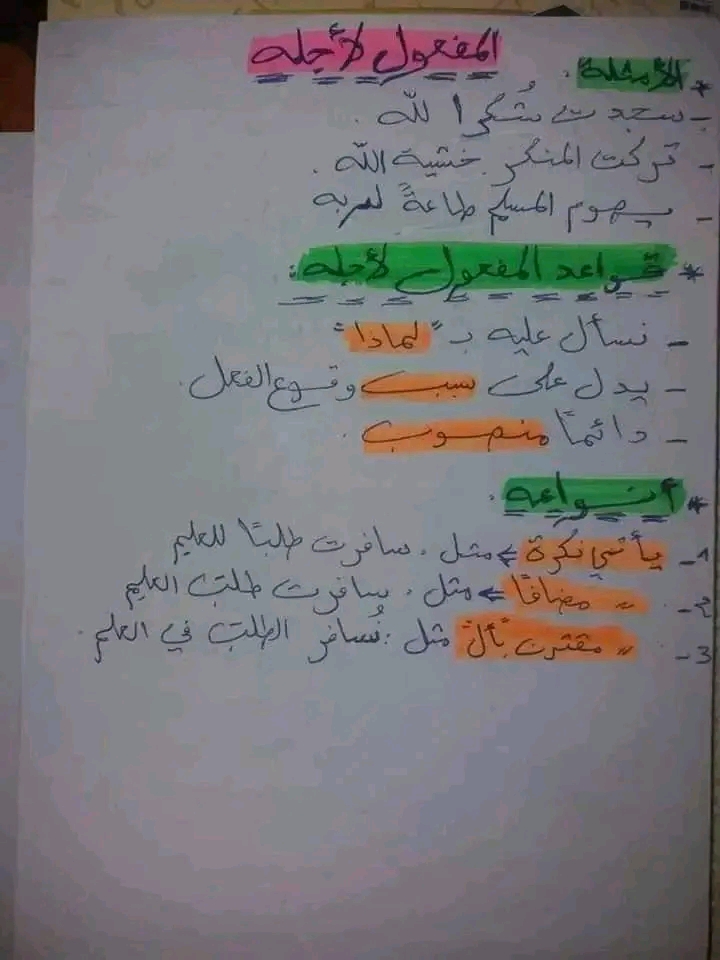 المفعول لأجله
* الأمثلة:
- سجدت شُكرا لله.
- تركت المنكر خشية الله.
- يصوم المسلم طاعةً لربه
* قواعد المفعول لأجله:
- نسأل عليه بـ "لماذا"
- يدل على سبب وقوع الفعل.
- دائمًا منصوب.
* أنواعه.
1- يأتي نكرة ⇐ مثل. سافرت طلبًا للعليم
2- " مضافًا ⇐ مثل. سافرت طلبَ العليم
3- " مقترن بـ"أل" مثل: نُسافر الطلبَ في العلم.